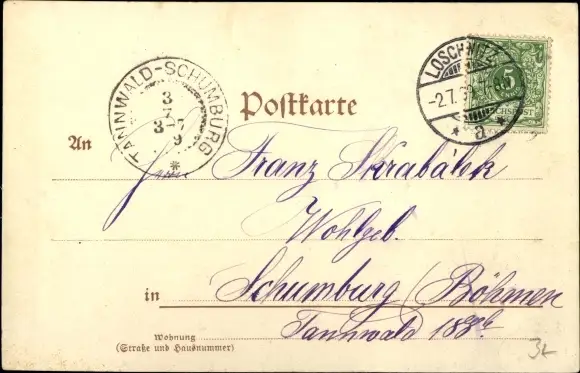 LOSCHWITZ
-2.7.
* a *
5
REICHSPOST
TANNWALD-SCHUMBURG
3
7
3-7
9
*
Postkarte
An
Herrn Franz Skrabálek
Wohlgeb.
in Schumburg / Böhmen
Tannwald 188b
Wohnung
(Straße und Hausnummer)